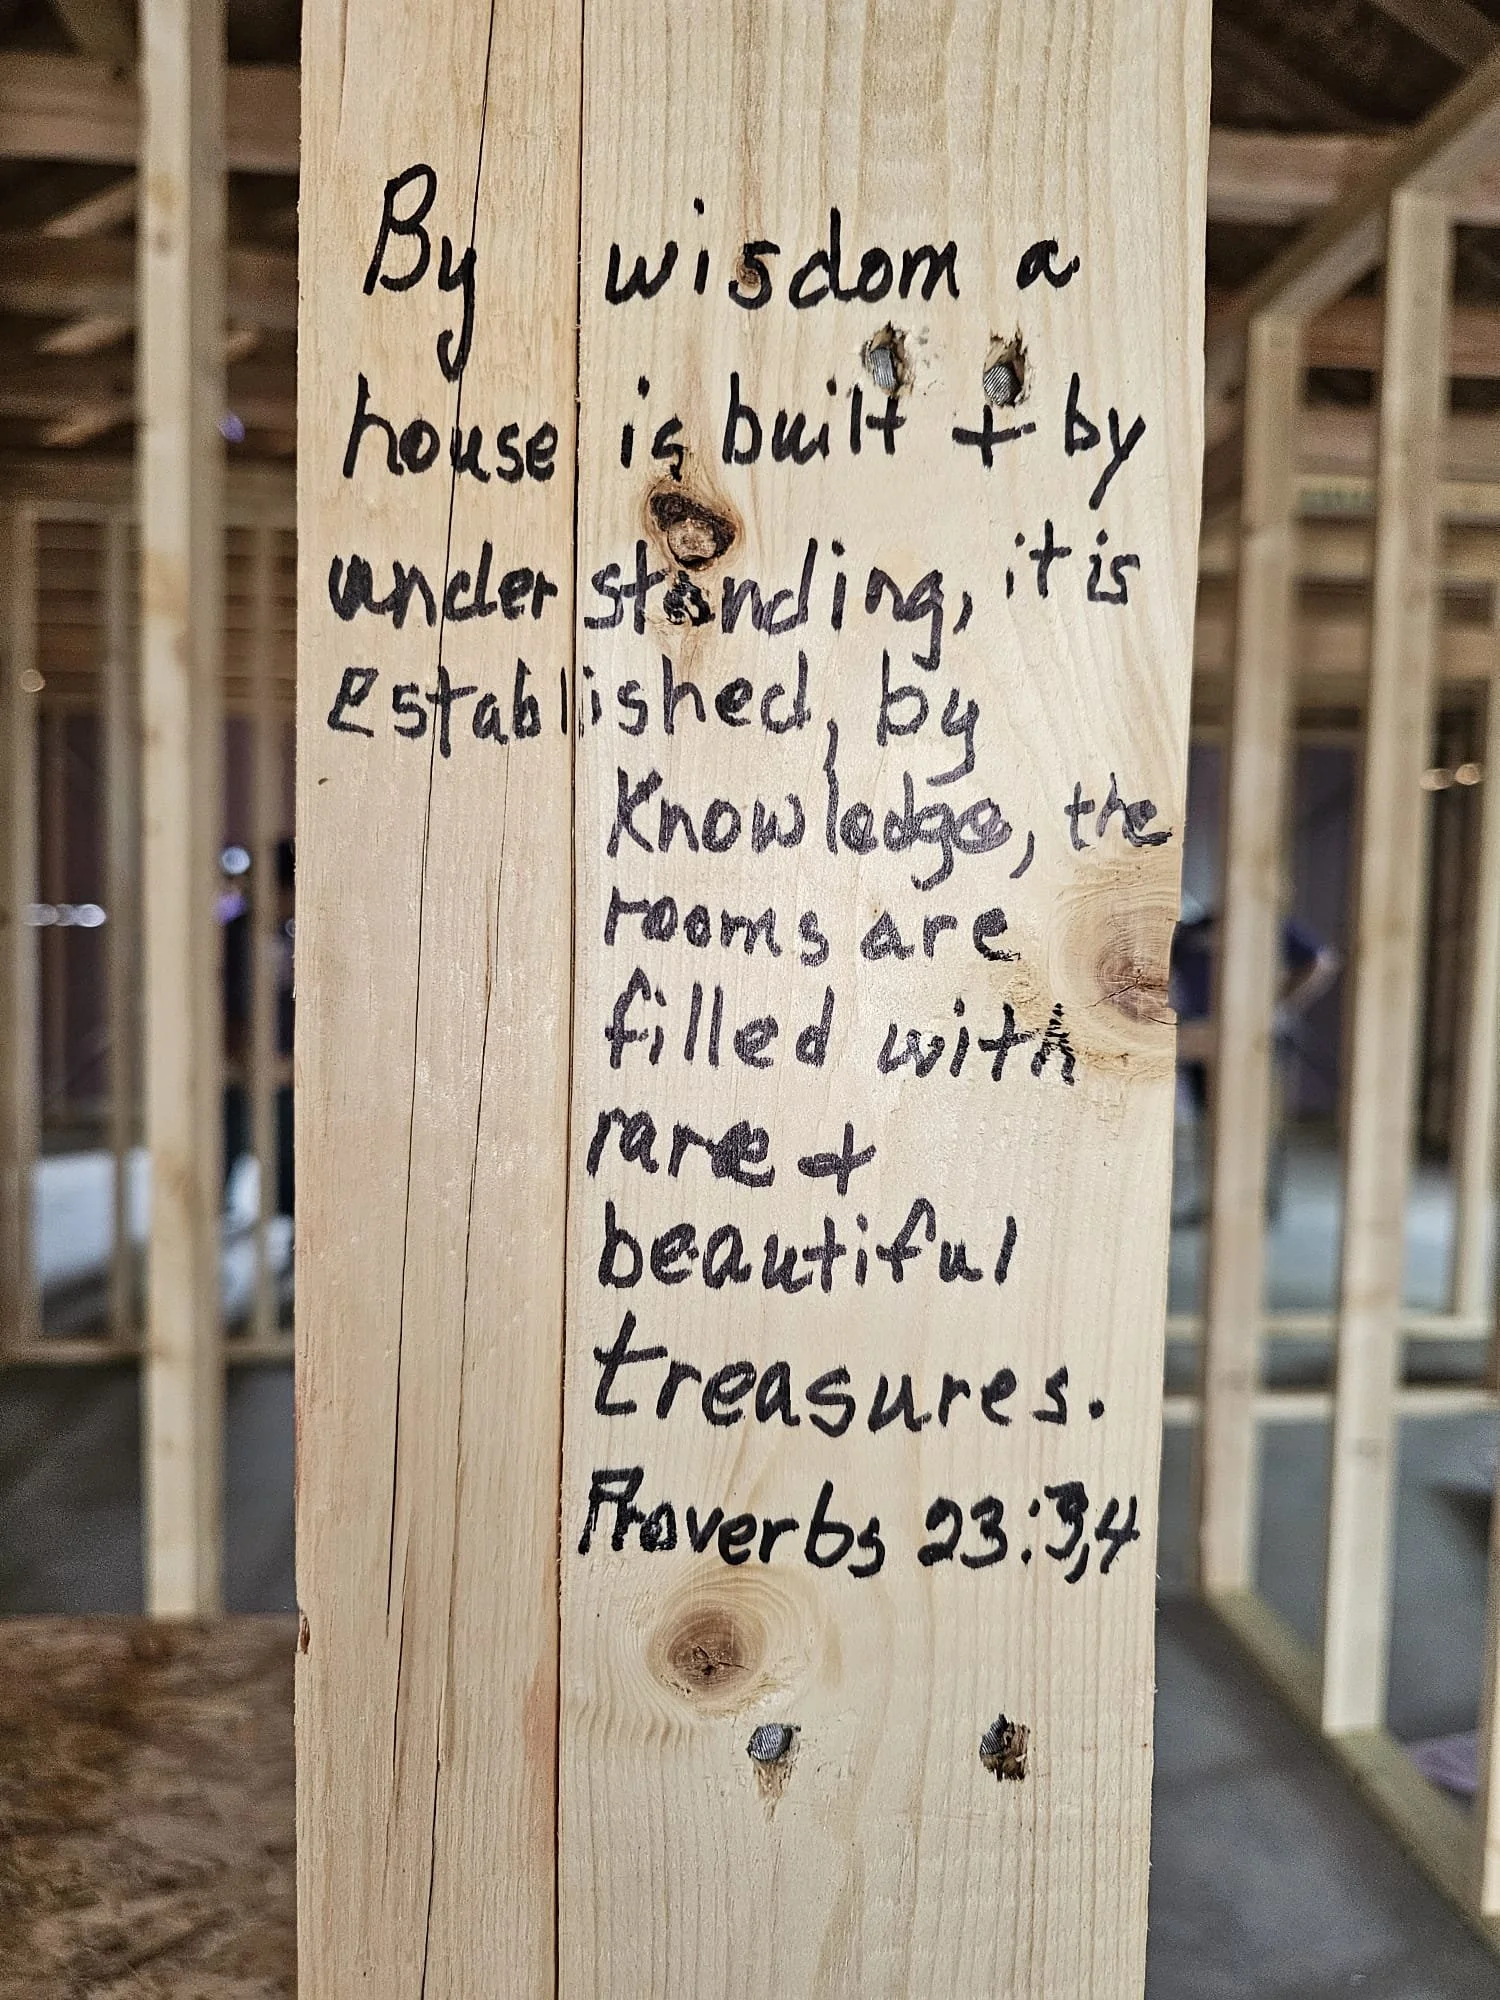 By wisdom a
house is built + by
understanding, it is
established, by
Knowledge, the
rooms are
filled with
rare +
beautiful
treasures.
Proverbs 23:3,4